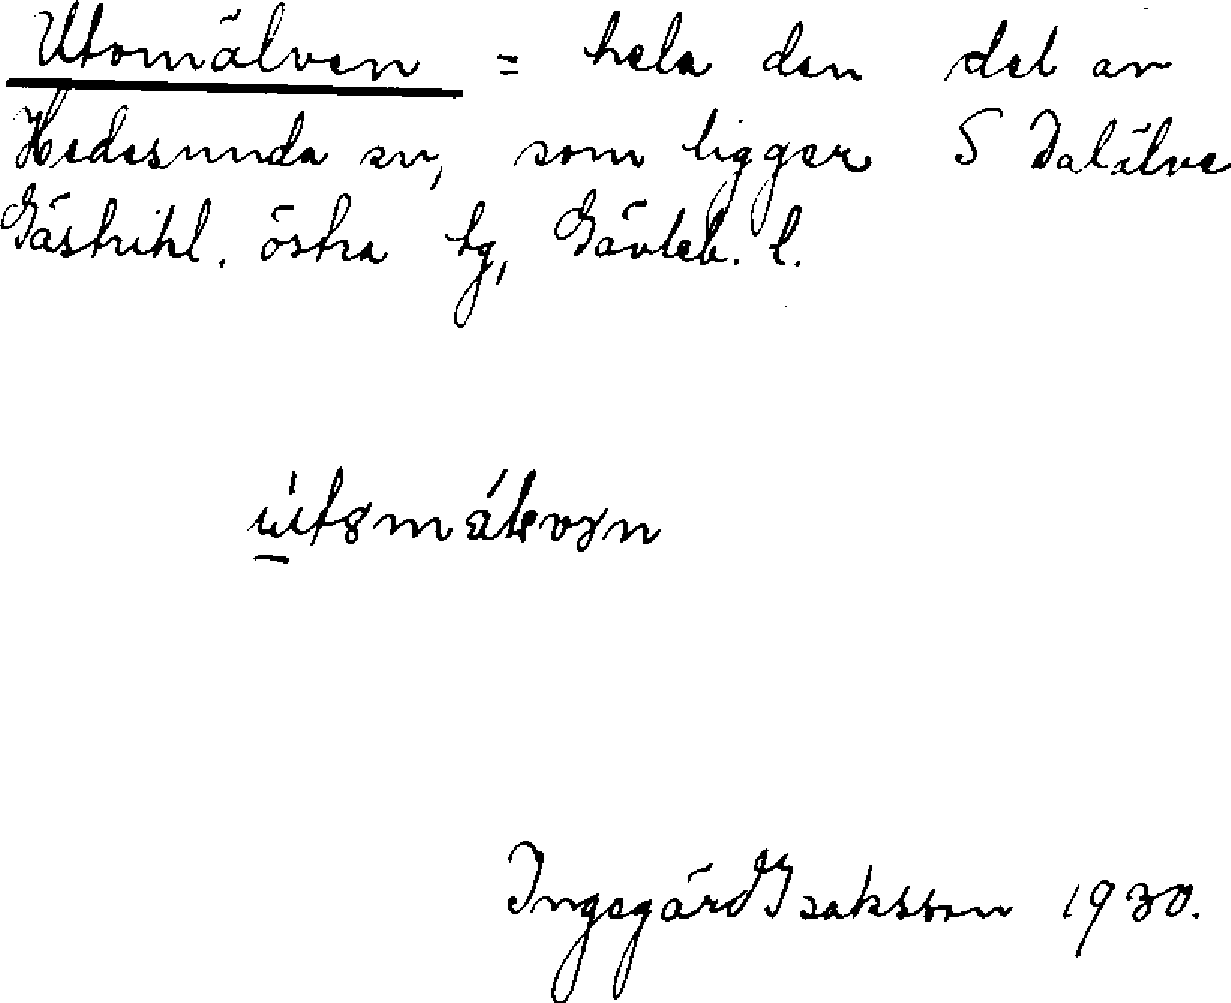 Utomälven = hela den del av
Hedesunda sn, som ligger S Dalälve
Gästrikl. östra tg, Gävleb. l.
Ingegärd Isaksson 1930.